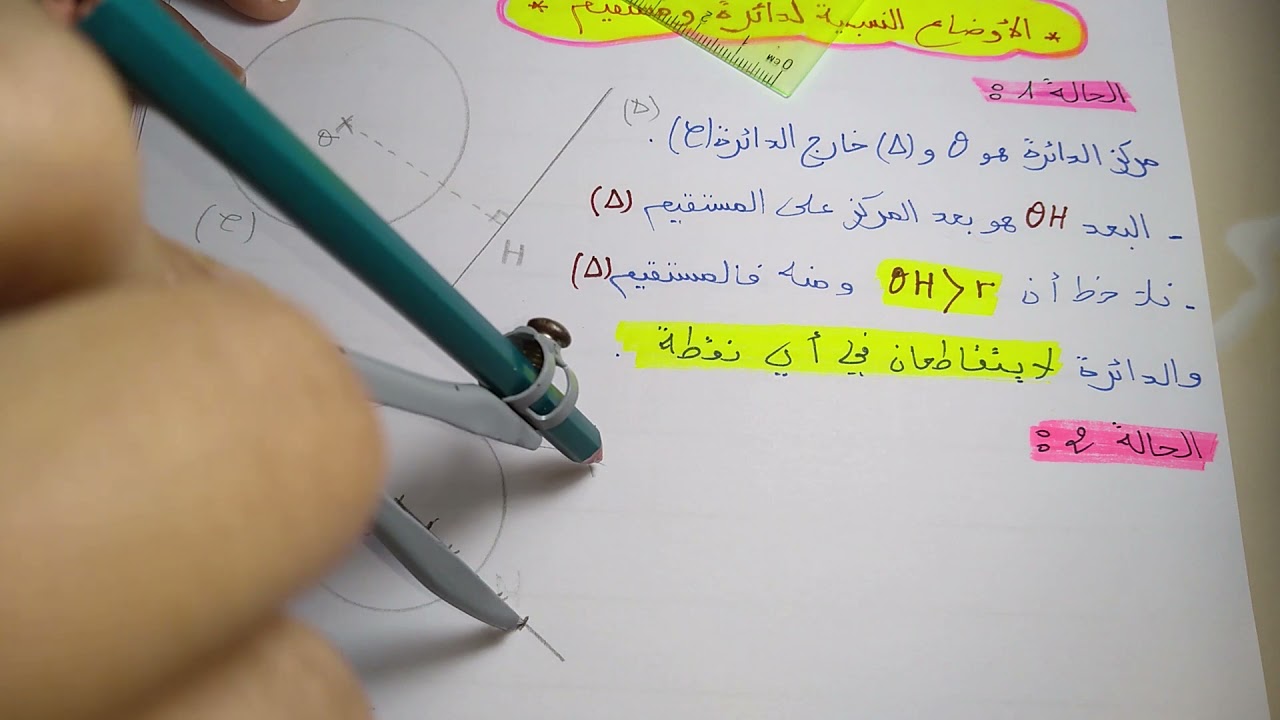 * الأوضاع النسبية لدائرة و مستقيم *
0 cm
الحالة 1 :
مركز الدائرة هو O و (Δ) خارج الدائرة (C) .
- البعد OH هو بعد المركز على المستقيم (Δ)
- نلاحظ أن OH > r ومنه فالمستقيم (Δ)
والدائرة لا يتقاطعان في أي نقطة .
الحالة 2 :
(Δ)
O
H
(C)